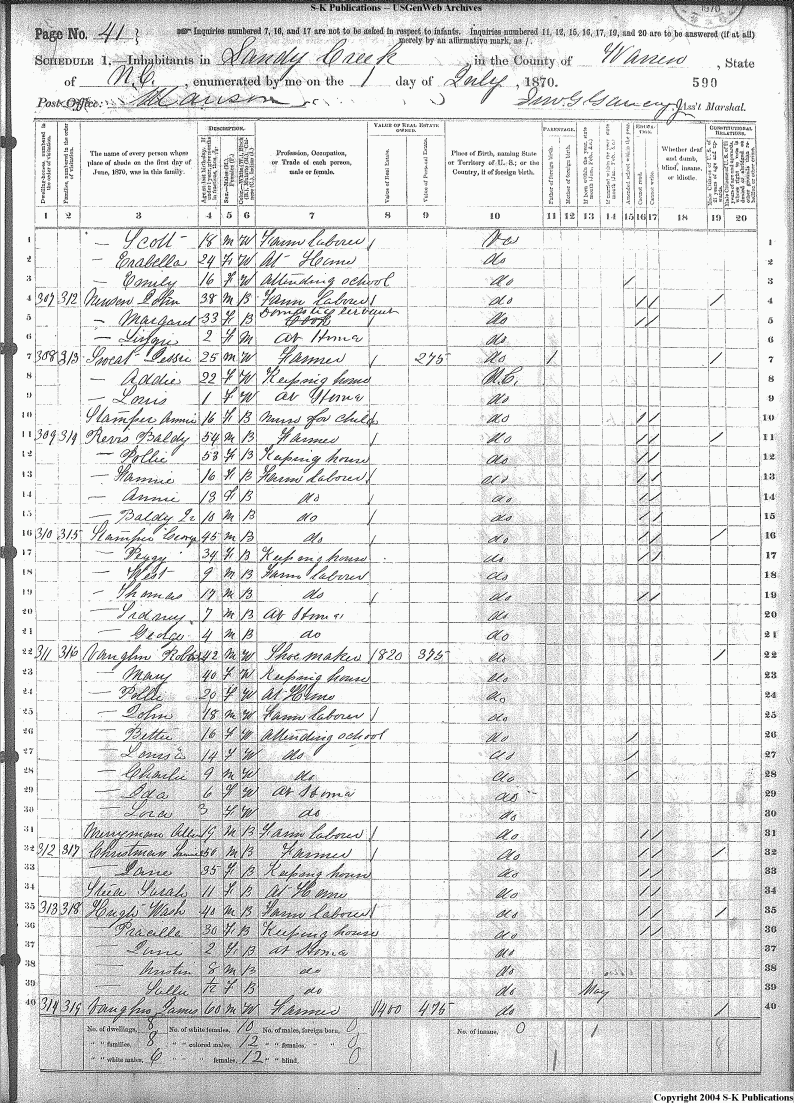 S-K Publications -- USGenWeb Archives
Page No. 41 } Inquiries numbered 7, 16, and 17 are not to be asked in respect to infants. Inquiries numbered 11, 12, 15, 16, 17, 19, and 20 are to be answered (if at all) merely by an affirmative mark, as /.
SCHEDULE 1.—Inhabitants in Sandy Creek, in the County of Warren, State
of N.C., enumerated by me on the 1 day of July, 1870. 590
Post Office: Manson Ass't Marshal.
DESCRIPTION. VALUE OF REAL ESTATE OWNED. PARENTAGE. EDUCATION. CONSTITUTIONAL RELATIONS.
Dwelling-houses, numbered in the order of visitation. Families, numbered in the order of visitation. The name of every person whose place of abode on the first day of June, 1870, was in this family. Profession, Occupation, or Trade of each person, male or female. Value of Real Estate. Value of Personal Estate. Place of Birth, naming State or Territory of U. S.; or the Country, if of foreign birth. Father of foreign birth. Mother of foreign birth. Attended school within the year. Cannot read. Cannot write. Whether deaf and dumb, blind, insane, or idiotic.
1 2 3 4 5 6 7 8 9 10 11 12 13 14 15 16 17 18 19 20
1 — Scott 18 M W Farm laborer / Va 1
2 — Erabella 24 F W At Home do 2
3 — Emily 16 F W Attending school do / 3
4 307 312 John 38 M B Farm laborer / do / / / 4
5 — Margaret 33 F B Domestic servant do / / 5
6 — 2 F M at Home do 6
7 308 313 Sweat Jesse 25 M W Farmer / 275 do / / 7
8 — Addie 22 F W Keeping house N.C. 8
9 — Louis 1 F W at Home do 9
10 Stamper Annie 16 F B nurse for child do / / 10
11 309 314 Revis Baldy 54 M B Farmer do / / / 11
12 — Pollie 53 F B Keeping house do / / 12
13 — Fannie 16 F B Farm laborer / do / / 13
14 — Annie 13 F B do do / / 14
15 — Baldy Jr 10 M B do / do / / 15
16 310 315 Stamper George 45 M B do do / / / 16
17 — Peggy 34 F B Keeping house do / / 17
18 — West 9 M B Farm laborer do 18
19 — Thomas 17 M B do do / / 19
20 — Sidney 7 M B At Home do 20
21 — George 4 M B do do 21
22 311 316 Vaughn Robert 42 M W Shoe maker 1820 375 do / 22
23 — Mary 40 F W Keeping house do 23
24 — Pollie 20 F W At Home do 24
25 — John 18 M W Farm laborer / do 25
26 — Bettie 16 F W Attending school do / 26
27 — Louisa 14 F W do do / 27
28 — Charlie 9 M W do do / 28
29 — Ida 6 F W At Home do 29
30 — Lora 3 F W do do 30
31 Merryman 19 M B Farm laborer / do / / 31
32 312 317 Christman 50 M B Farmer / do / / / 32
33 — Jane 35 F B Keeping house do / / 33
34 Sarah 11 F B At Home do / / 34
35 313 318 Hugh Wash 40 M B Farm laborer / do / / / 35
36 — Pracilla 30 F B Keeping house do / / 36
37 — June 2 F B at Home do 37
38 — Austin 8 M B do do 38
39 — Sallie F B do do May 39
40 314 319 Vaughn James 60 M W Farmer 1400 475 do / 40
No. of dwellings, 8 No. of white females, 10 No. of males, foreign born, 0 No. of insane, 0 1
" " families, 8 " " colored males, 12 " " females, " " 0 8
" " white males, 6 " " females, 12 " " blind, 0 1
Copyright 2004 S-K Publications